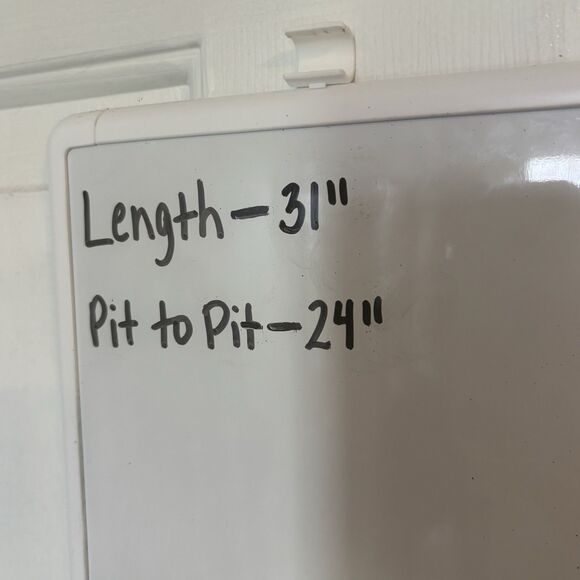 Length - 31"
Pit to Pit - 24"